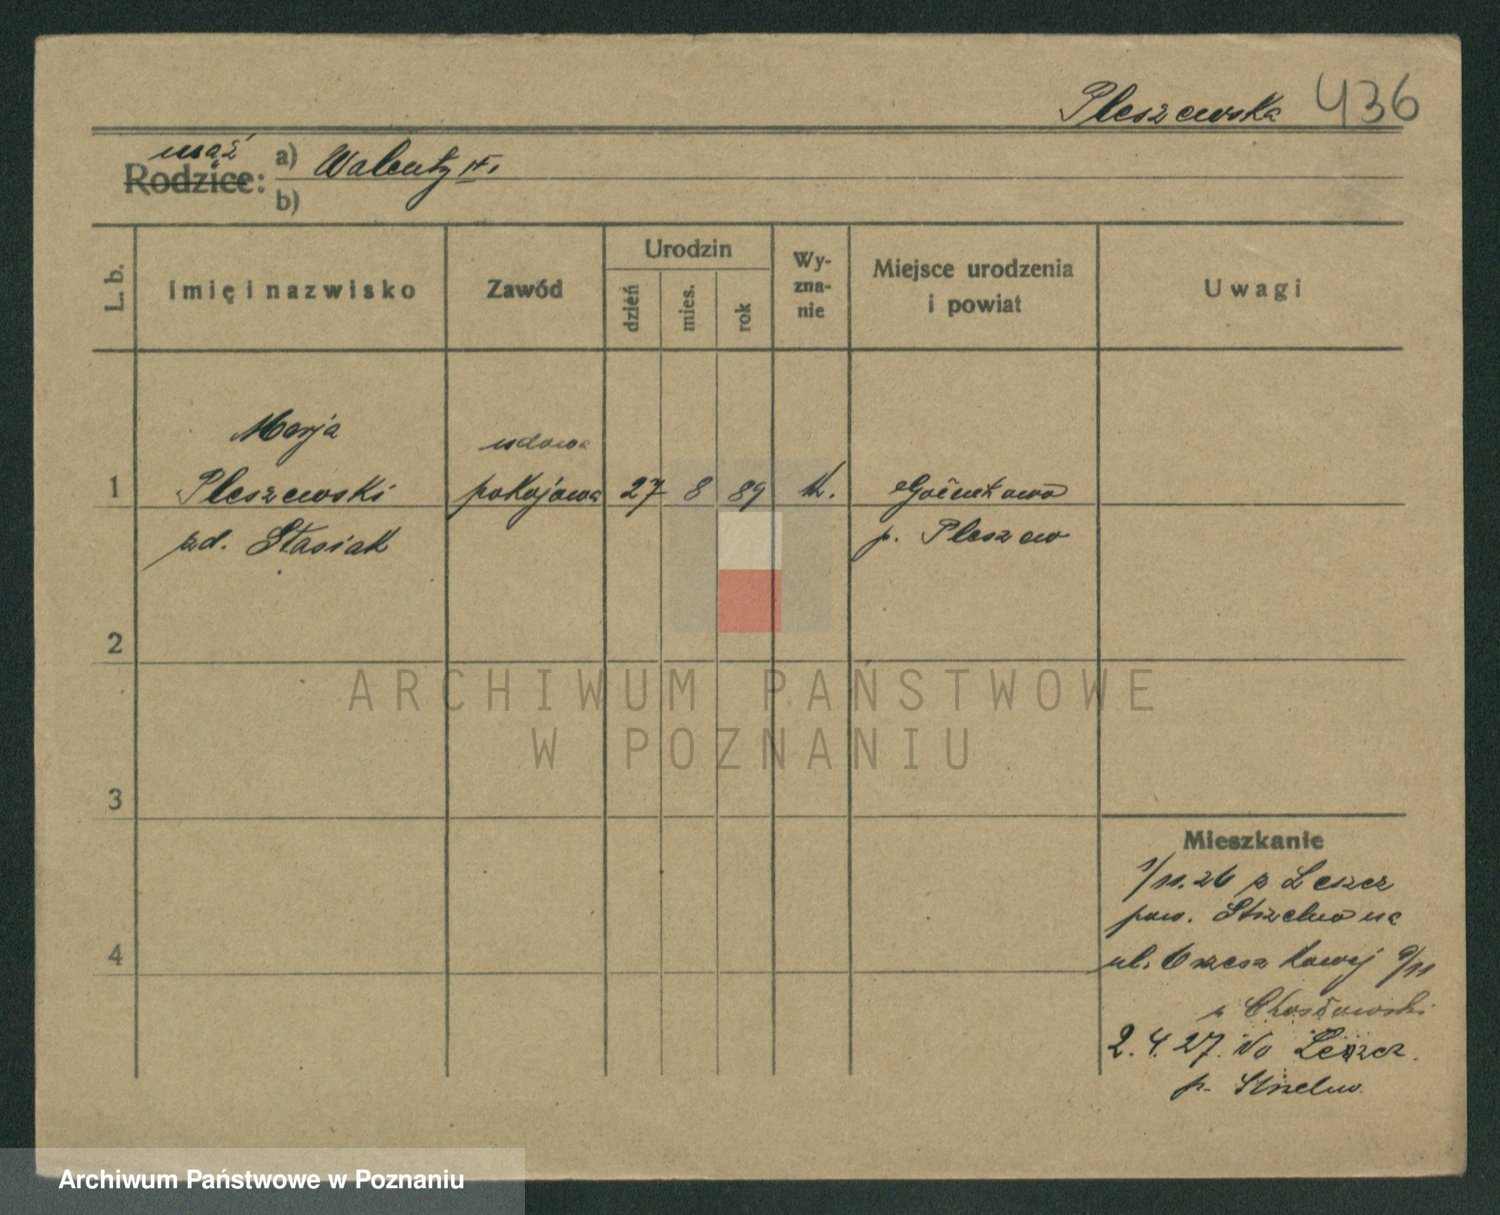 Pleszewska 436
mąż
Rodzice: a) Walenty
b)
L. b.
Imię i nazwisko
Zawód
Urodzin
dzień
mies.
rok
Wy-
zna-
nie
Miejsce urodzenia
i powiat
Uwagi
Marja
wdowa
1 Pleszewski pokojowa 27 8 89 k.
zd. Stasiak
p. Pleszew
2
3
4
Mieszkanie
1/11.26 z Leszcz
pow. Strzelno na
ul. 9/11
u
2.4.27. do Leszcz.
p. Strzelno
ARCHIWUM PAŃSTWOWE
W POZNANIU
Archiwum Państwowe w Poznaniu